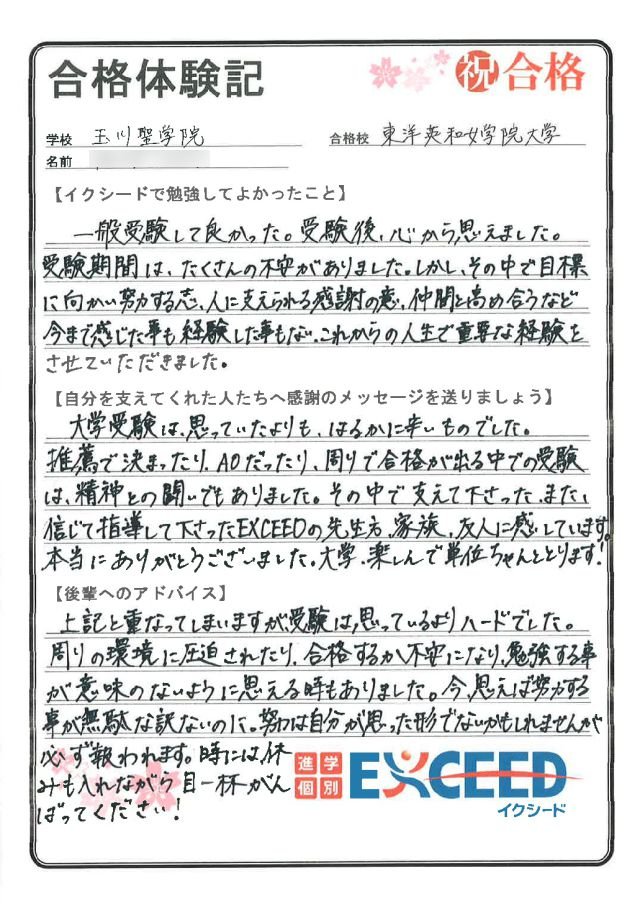 合格体験記
祝 合格
学校 玉川聖学院
合格校 東洋英和女学院大学
名前
【イクシードで勉強してよかったこと】
一般受験して良かった。受験後、心から思えました。
受験期間は、たくさんの不安がありました。しかし、その中で目標
に向かい努力する志、人に支えられる感謝の意、仲間と高め合うなど
今まで感じた事も経験した事もない、これからの人生で重要な経験を
させていただきました。
【自分を支えてくれた人たちへ感謝のメッセージを送りましょう】
大学受験は、思っていたよりも、はるかに辛いものでした。
推薦で決まったり、AOだったり、周りで合格が出る中での受験
は、精神との闘いでもありました。その中で支えて下さった、また、
信じて指導して下さったEXCEEDの先生方、家族、友人に感しています。
本当にありがとうございました。大学、楽しんで単位ちゃんととります!
【後輩へのアドバイス】
上記と重なってしまいますが、受験は、思っているよりハードでした。
周りの環境に圧迫されたり、合格するか不安になり、勉強する事
が意味のないように思える時もありました。今、思えば努力する
事が無駄な訳ないのに。努力は自分が思った形でないかもしれませんが
必ず報われます。時には休
みも入れながら目一杯がん
ばってください!
進学個別 EXCEED
イクシード